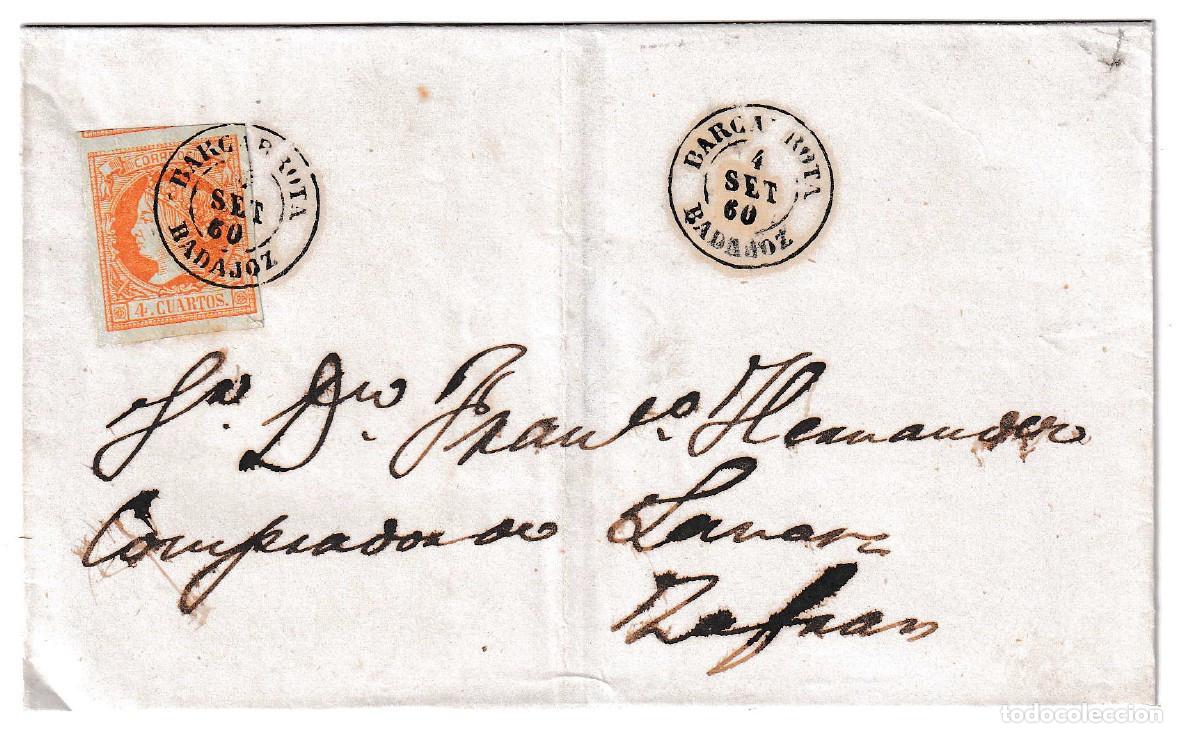 CORREOS
4 CUARTOS.
BARCARROTA
SET
60
BADAJOZ
BARCARROTA
4
SET
60
BADAJOZ
Sr. Dn. Franco. Hernandez
Comprador de Lanas
Zafra
todocoleccion